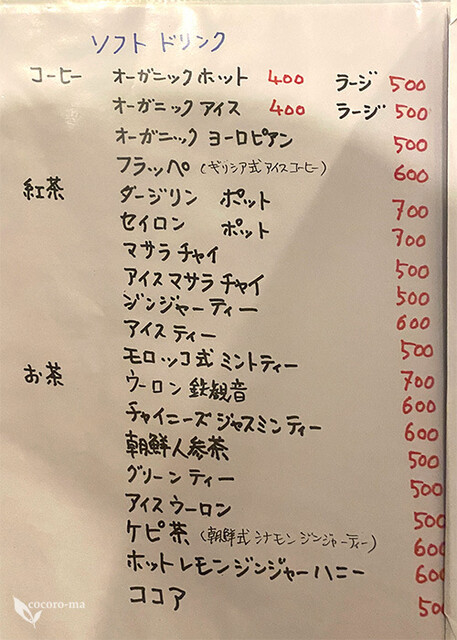 ソフト ドリンク
コーヒー オーガニック ホット 400 ラージ 500
オーガニック アイス 400 ラージ 500
オーガニック ヨーロピアン 500
フラッペ (ギリシア式アイスコーヒー) 600
紅茶 ダージリン ポット 700
セイロン ポット 700
マサラ チャイ 500
アイス マサラ チャイ 500
ジンジャー ティー 600
アイス ティー 500
モロッコ式 ミントティー 700
お茶 ウーロン 鉄観音 600
チャイニーズ ジャスミン ティー 600
朝鮮人参茶 500
グリーン ティー 500
アイス ウーロン 500
ケピ茶 (朝鮮式 シナモン ジンジャーティー) 600
ホット レモン ジンジャー ハニー 600
ココア 50
cocoro-ma